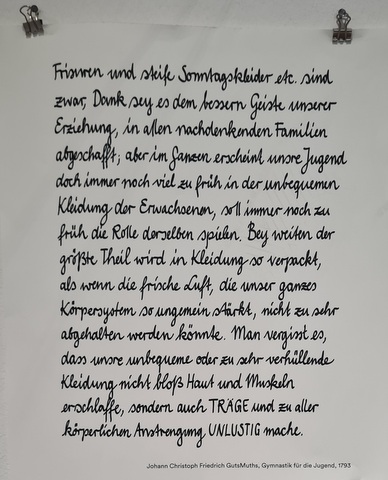 Frisuren und steife Sonntagskleider etc. sind
zwar, Dank sey es dem bessern Geiste unserer
Erziehung, in allen nachdenkenden Familien
abgeschafft; aber im Ganzen erscheint unsre Jugend
doch immer noch viel zu früh in der unbequemen
Kleidung der Erwachsenen, soll immer noch zu
früh die Rolle derselben spielen. Bey weiten der
größte Theil wird in Kleidung so verpackt,
als wenn die frische Luft, die unser ganzes
Körpersystem so ungemein stärkt, nicht zu sehr
abgehalten werden könnte. Man vergisst es,
dass unsre unbequeme oder zu sehr verhüllende
Kleidung nicht bloß Haut und Muskeln
erschlaffe, sondern auch TRÄGE und zu aller
körperlichen Anstrengung UNLUSTIG mache.
Johann Christoph Friedrich GutsMuths, Gymnastik für die Jugend, 1793